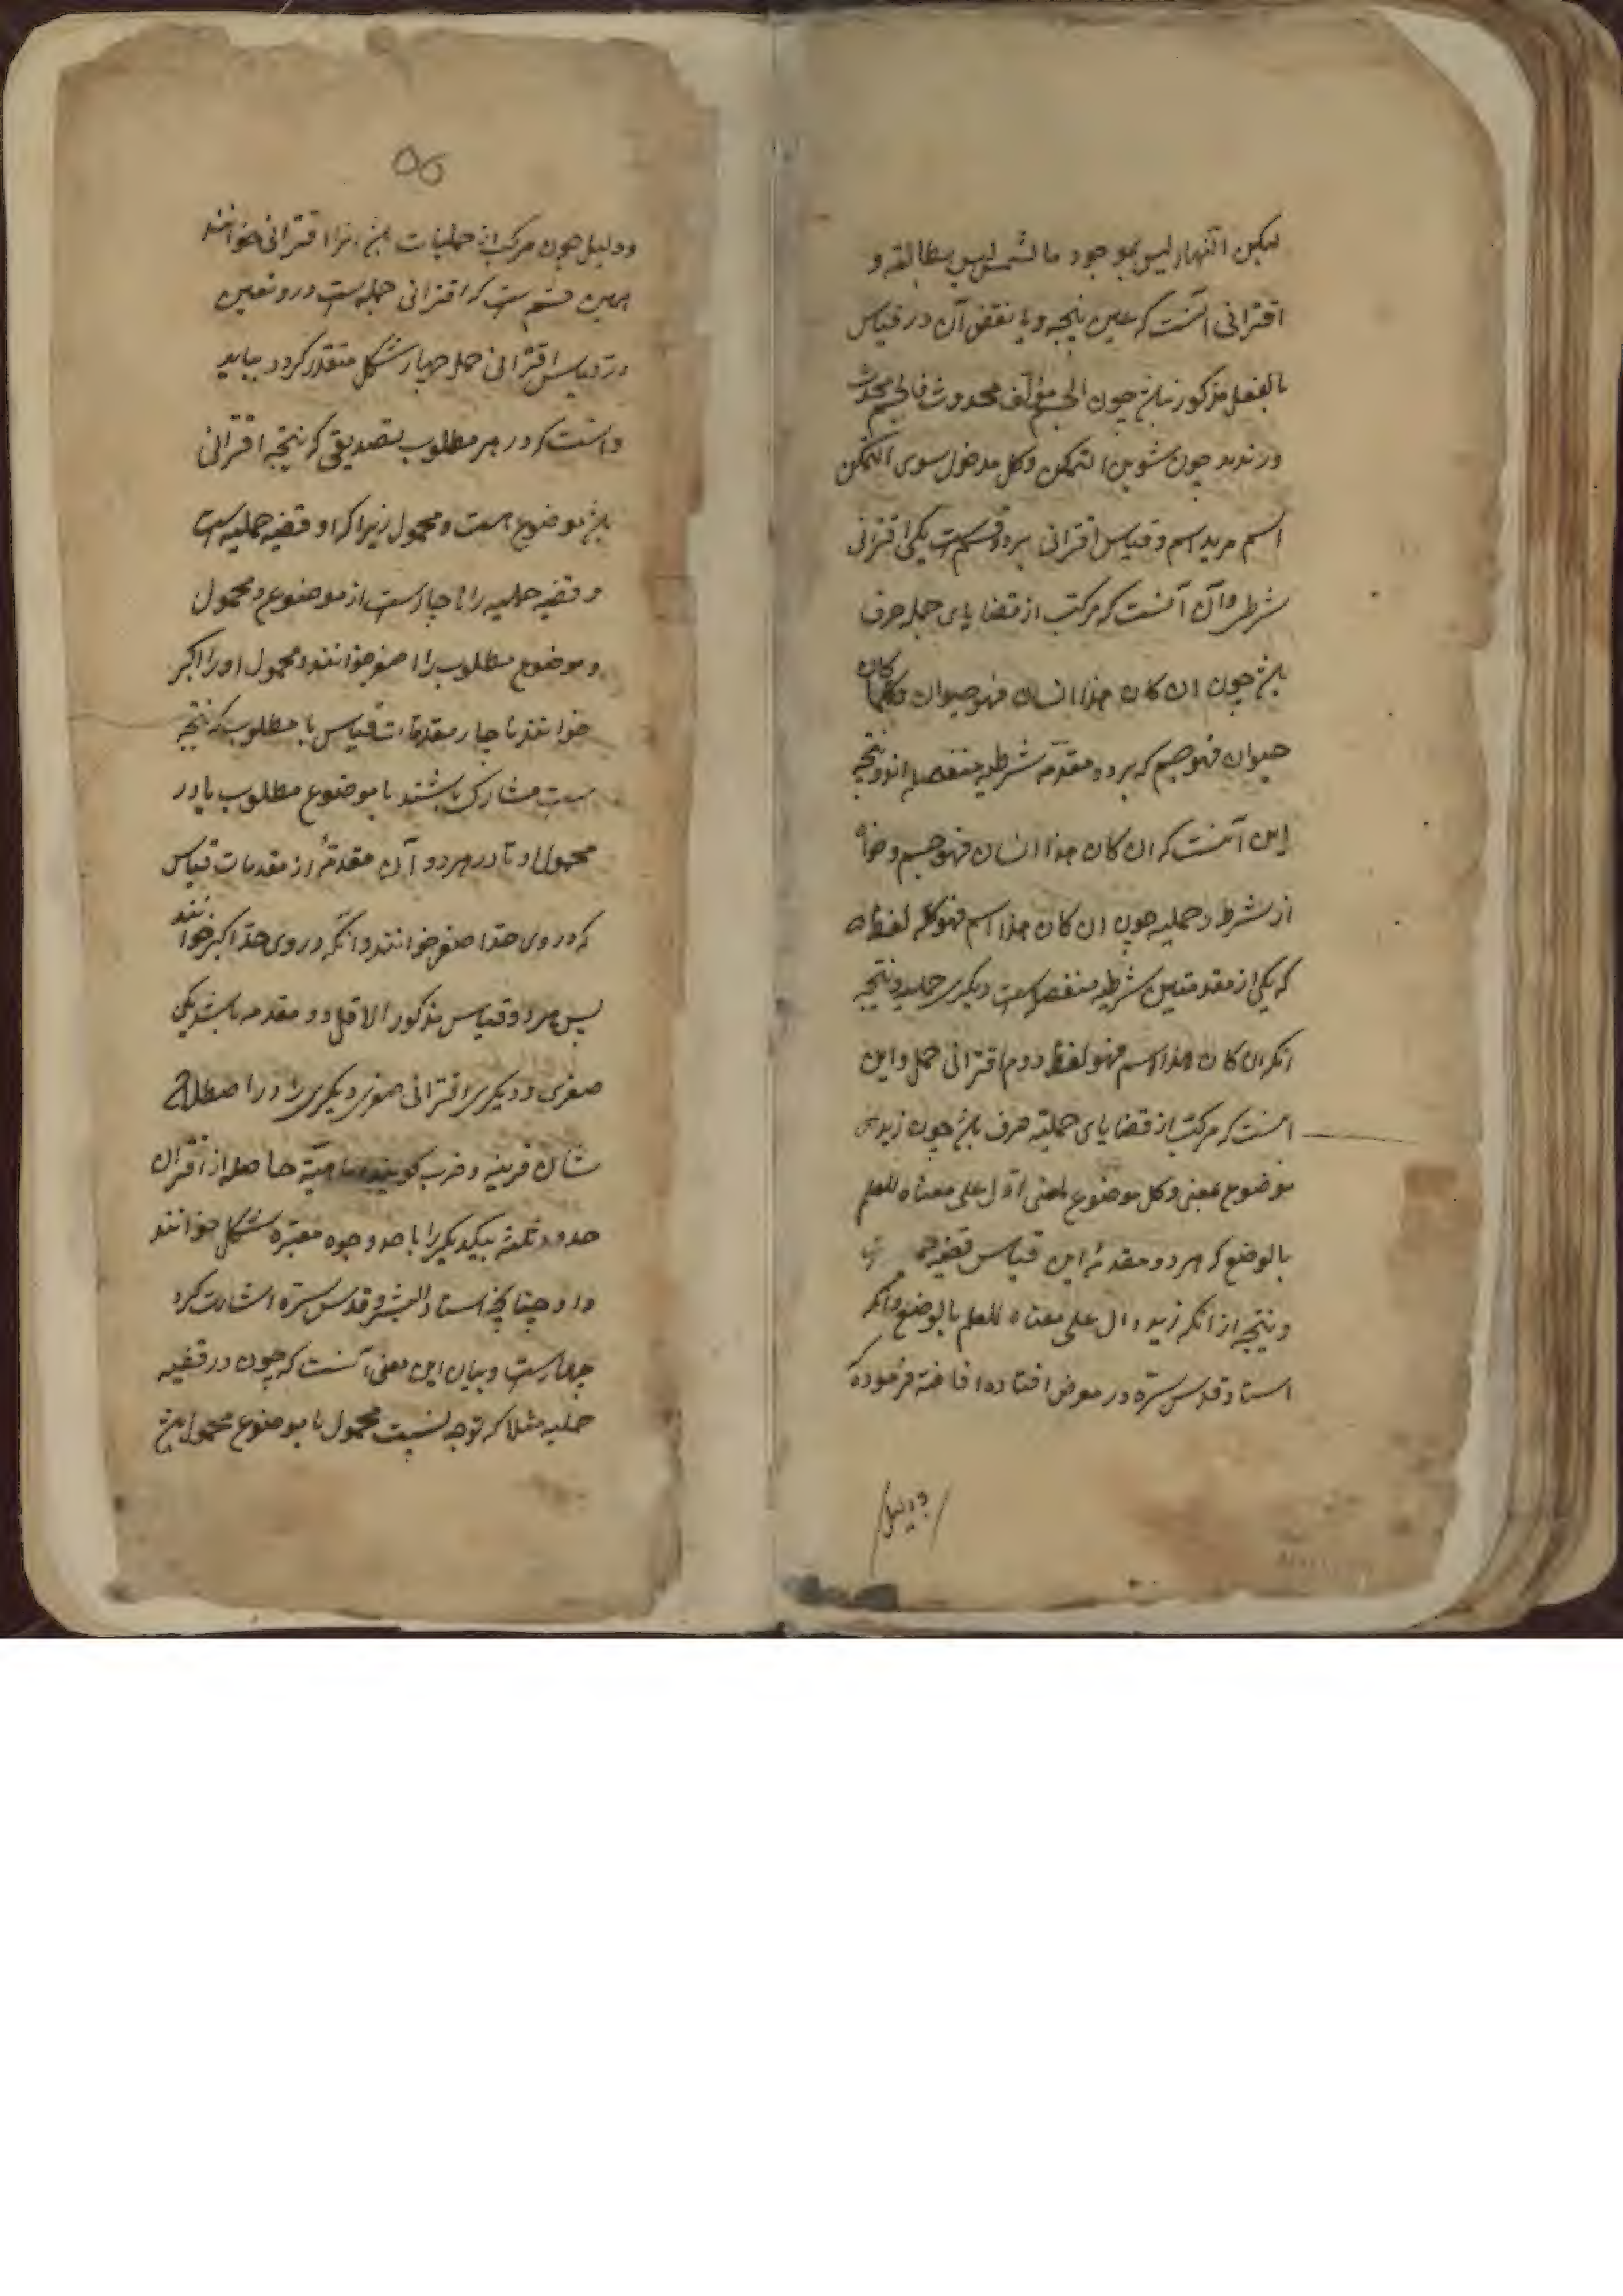 لیکن النهار لیس بموجود فالشمس لیس بطالعة و
اقترانی آنست که عین نتیجه و یا نقیض آن در قیاس
بالفعل مذکور نباشد چون الجسم مؤلف محدوث فالجسم محدث
چون تنوین التمکن وکل مدخول سوی التمکن
اسم فزید اسم و قیاس اقترانی بر دو قسم است یکی اقترانی
شرطی و آن آنست که مرکب از قضایای جمله صرف
باشد چون ان کان هذا انسان فهو حیوان وکلما کان
حیوان فهو جسم که هر دو مقدمه شرطیه منفصله اند و نتیجه
این آنست که ان کان هذا انسان فهو جسم و خواه
از شرط و حملیه چون ان کان هذا اسم فهو کلمه لفظ
که یکی از مقدمتین شرطیه منفصله است و دیگری حملیه و نتیجه
آنکه ان کان هذا اسم فهو لفظ دوم اقترانی حملی و این
آنست که مرکب از قضایای حملیه صرف باشد چون زید
موضوع بمعنی وکل موضوع لمعنی دال علی معناه للعلم
بالوضع که هر دو مقدمهٔ این قیاس قضیه
و نتیجه از آنکه زید دال علی معناه للعلم بالوضع و آنکه
استاد قدس سره در معرض افتاده افاضه فرموده که
و دلیل
۵۵
و دلیل چون مرکب از حملیات باشد آنرا اقترانی خوانند
همین قسم است که اقترانی حملیه است و در و تعیین
در قیاس اقترانی حملی چهار شکل متقدر کردد بباید
دانست که در هر مطلوب تصدیقی که نتیجه اقترانی
باشد موضوع هست و محمول زیرا که او قضیه حملیه است
و قضیه حملیه را ناچار است از موضوع و محمول
و موضوع مطلوب را اصغر خوانند و محمول او را اکبر
خوانند ناچار مقدمات قیاس با مطلوب که نتیجه
است مشارک باشند با موضوع مطلوب یا در
محمول او تا در هر دو آن مقدمهٔ از مقدمات قیاس
که در وی حد اصغر خوانند و آنکه در وی حد اکبر خوانند
پس هر دو قیاس مذکور الاقل دو مقدمه باشد یکی
صغری و دیگری اقترانی صغری دیگری را در اصطلاح
شان قرینه و ضرب کویند و هیئة حاصله از اقتران
حدود ثلثه بیکدیکر را با صد وجوه معتبره شکل خوانند
داد و چنانچه استاد البشر قدس سره اشارت کرد
چهار است و بیان این معنی آنست که چون در قضیه
حملیه مثلا که توجه نسبت محمول با موضوع محمول باشد